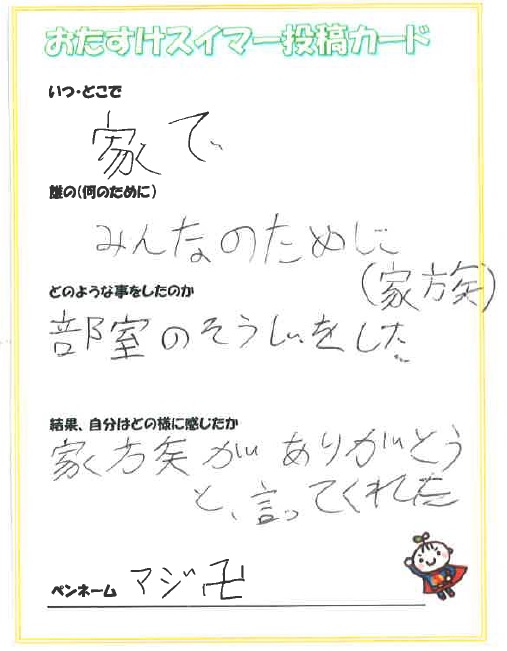 おたすけスイマー投稿カード
いつ・どこで
家で
誰の(何のために)
みんなのために
(家族)
どのような事をしたのか
部室のそうじをした
結果、自分はどの様に感じたか
家族がありがとう
と、言ってくれた
ペンネーム マジ卍